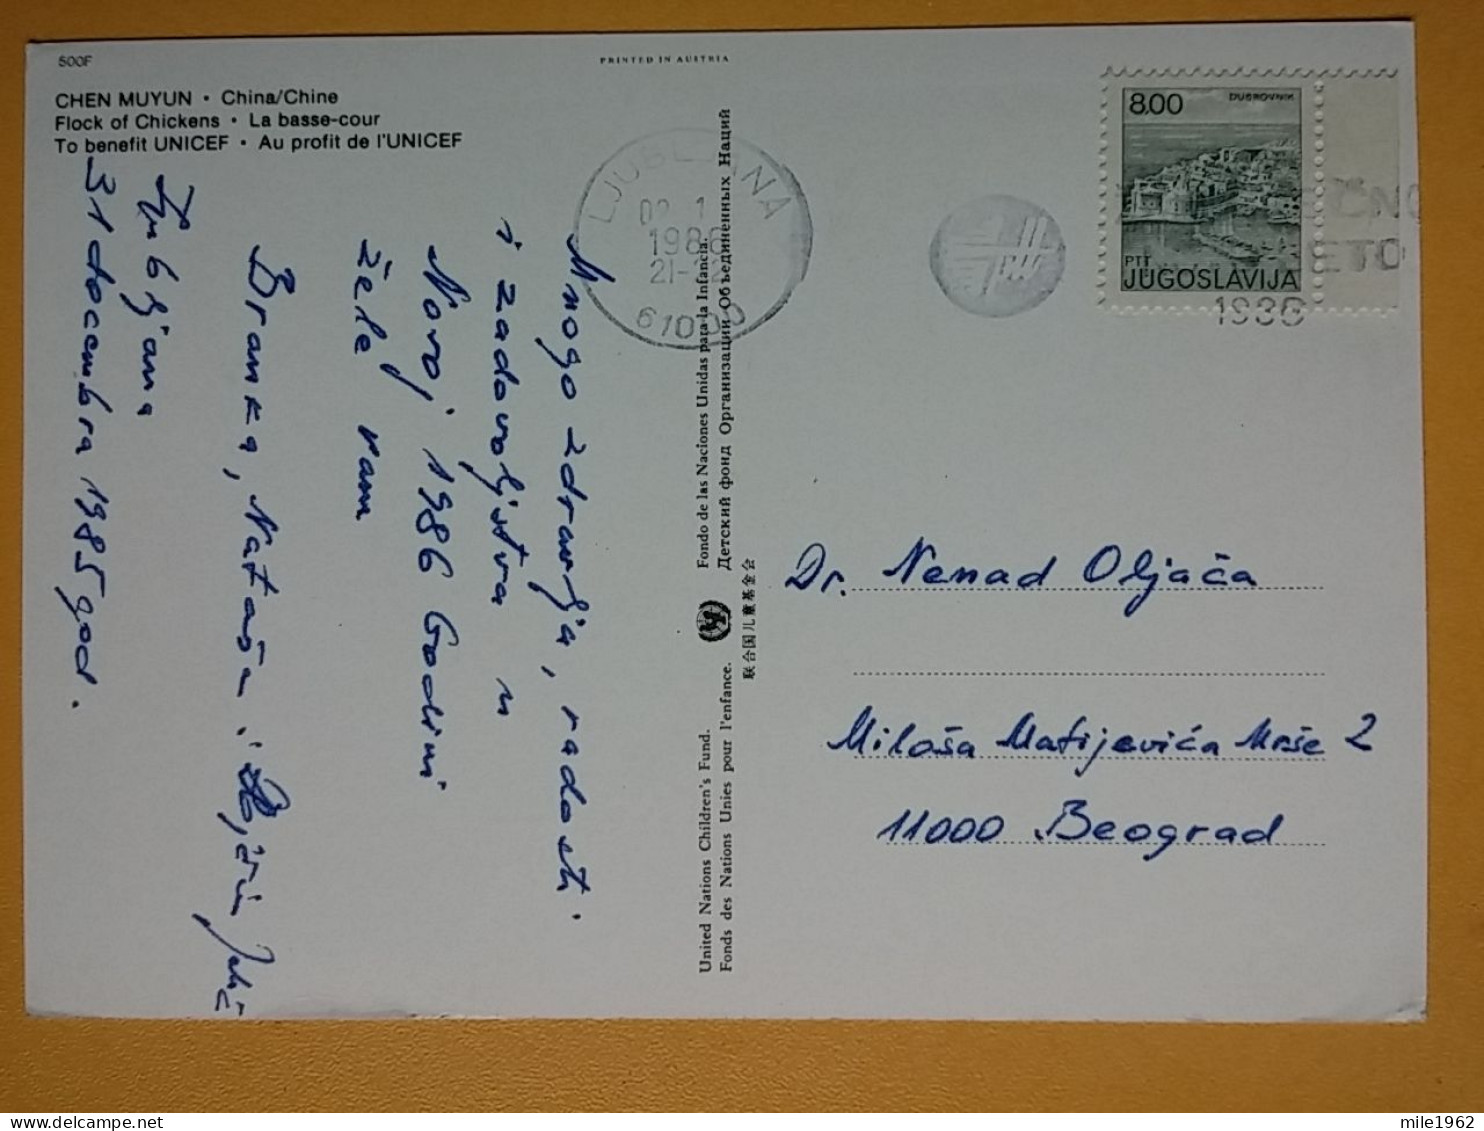 500F
PRINTED IN AUSTRIA
CHEN MUYUN • China/Chine
Flock of Chickens • La basse-cour
To benefit UNICEF • Au profit de l'UNICEF
Mnogo zdravlja, radosti
i zadovoljstva u
Novoj 1986 Godini
žele vam
Branka, Nataša i
Ljubljana
31 decembra 1985 god.
United Nations Children's Fund.
Fonds des Nations Unies pour l'enfance.
Fondo de las Naciones Unidas para la Infancia.
Детский фонд Организации Объединенных Наций
联合国儿童基金会
LJUBLJANA
1986
61000
8.00
DUBROVNIK
PTT
JUGOSLAVIJA
1986
Dr. Nenad Oljača
Miloša Matijevića Mrše 2
11000 Beograd
mile1962